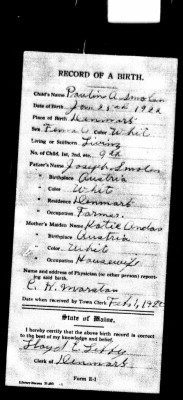 RECORD OF A BIRTH.
Child's Name Paulin A. Smolen
Date of Birth Jan 25 1922
Place of Birth Denmark
Sex Female Color Whit
Living or Stillborn Living
No. of Child, 1st, 2nd, etc.
Father's Name Joseph Smolen
" Birthplace Austria
" Color Whit
" Residence Denmark
" Occupation Farmer
Mother's Maiden Name Katie
" Birthplace Austria
" Color Whit
" Occupation Housewife
Name and address of Physician (or other person) reporting said birth.
C. H. Marston
Date when received by Town Clerk Feb 1, 1922
State of Maine.
I hereby certify that the above birth record is correct
to the best of my knowledge and belief.
Lloyd E. Libby
Clerk of Denmark
Form R-1